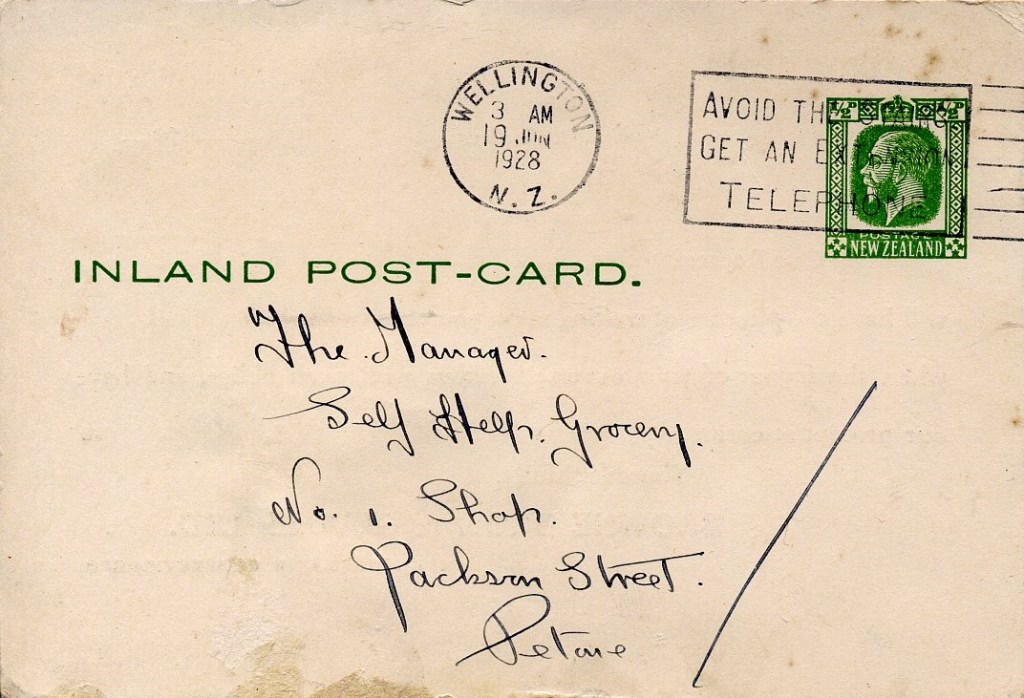 WELLINGTON
3 AM
19 JUN
1928
N.Z.
AVOID THE STAIRS
GET AN EXTENSION
TELEPHONE
½D ½D
POSTAGE
NEW ZEALAND
INLAND POST-CARD.
The Manager.
Self Help. Grocery.
No. 1. Shop.
Jackson Street.
Petone